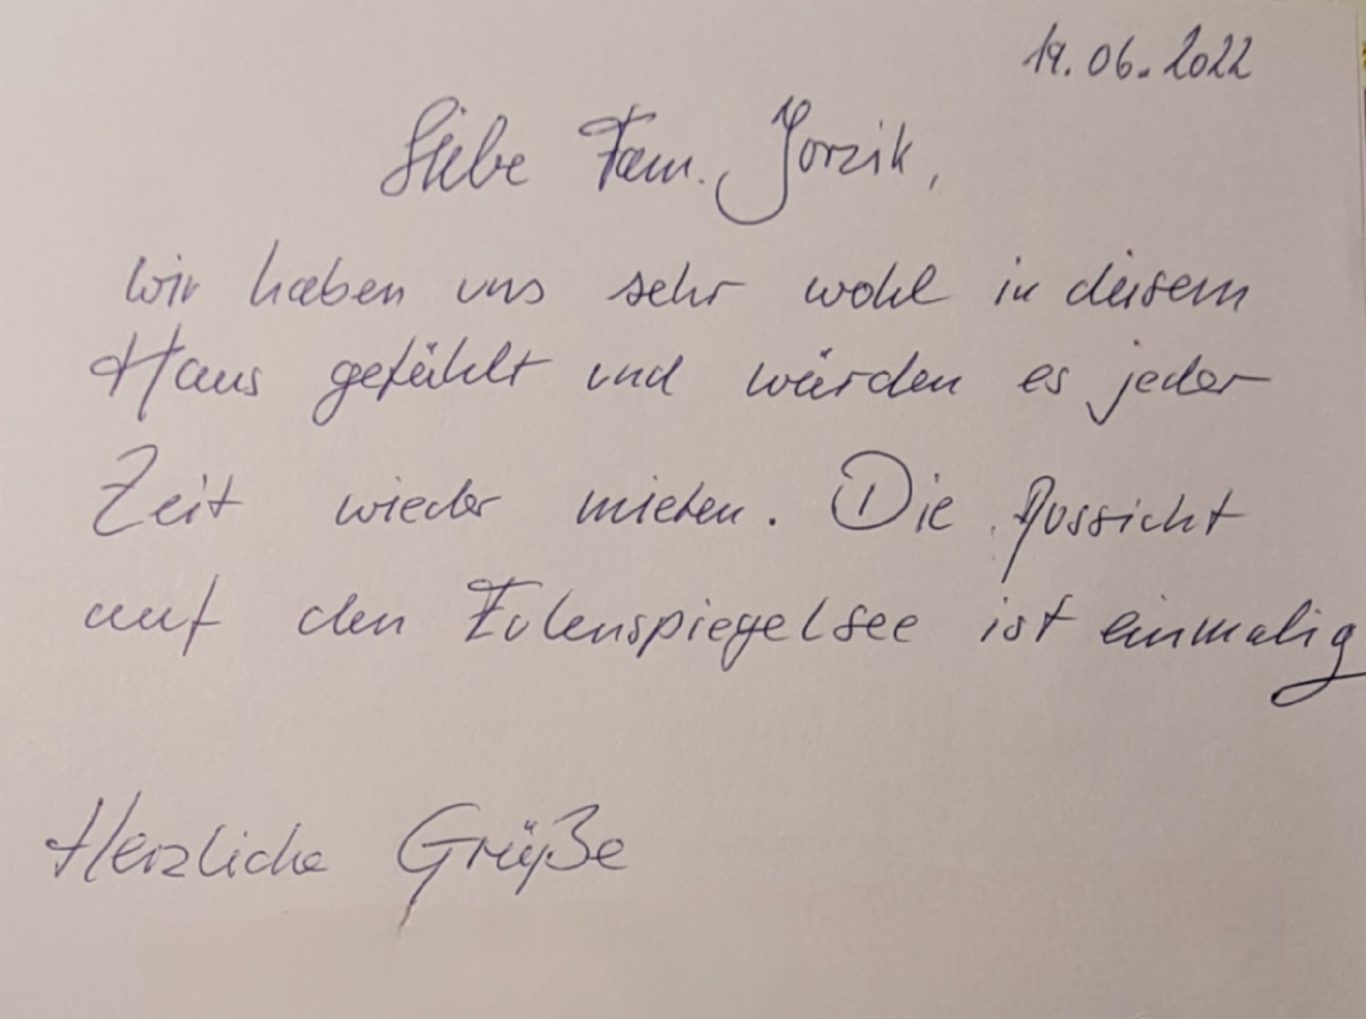 19.06.2022
Liebe Fam. Jorzik,
wir haben uns sehr wohl in diesem
Haus gefühlt und würden es jeder
Zeit wieder mieten. Die Aussicht
auf den Eulenspiegelsee ist einmalig
Herzliche Grüße